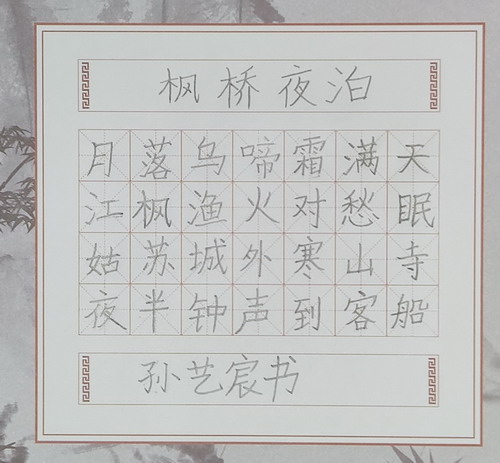 枫桥夜泊
月落乌啼霜满天
江枫渔火对愁眠
姑苏城外寒山寺
夜半钟声到客船
孙艺宸书